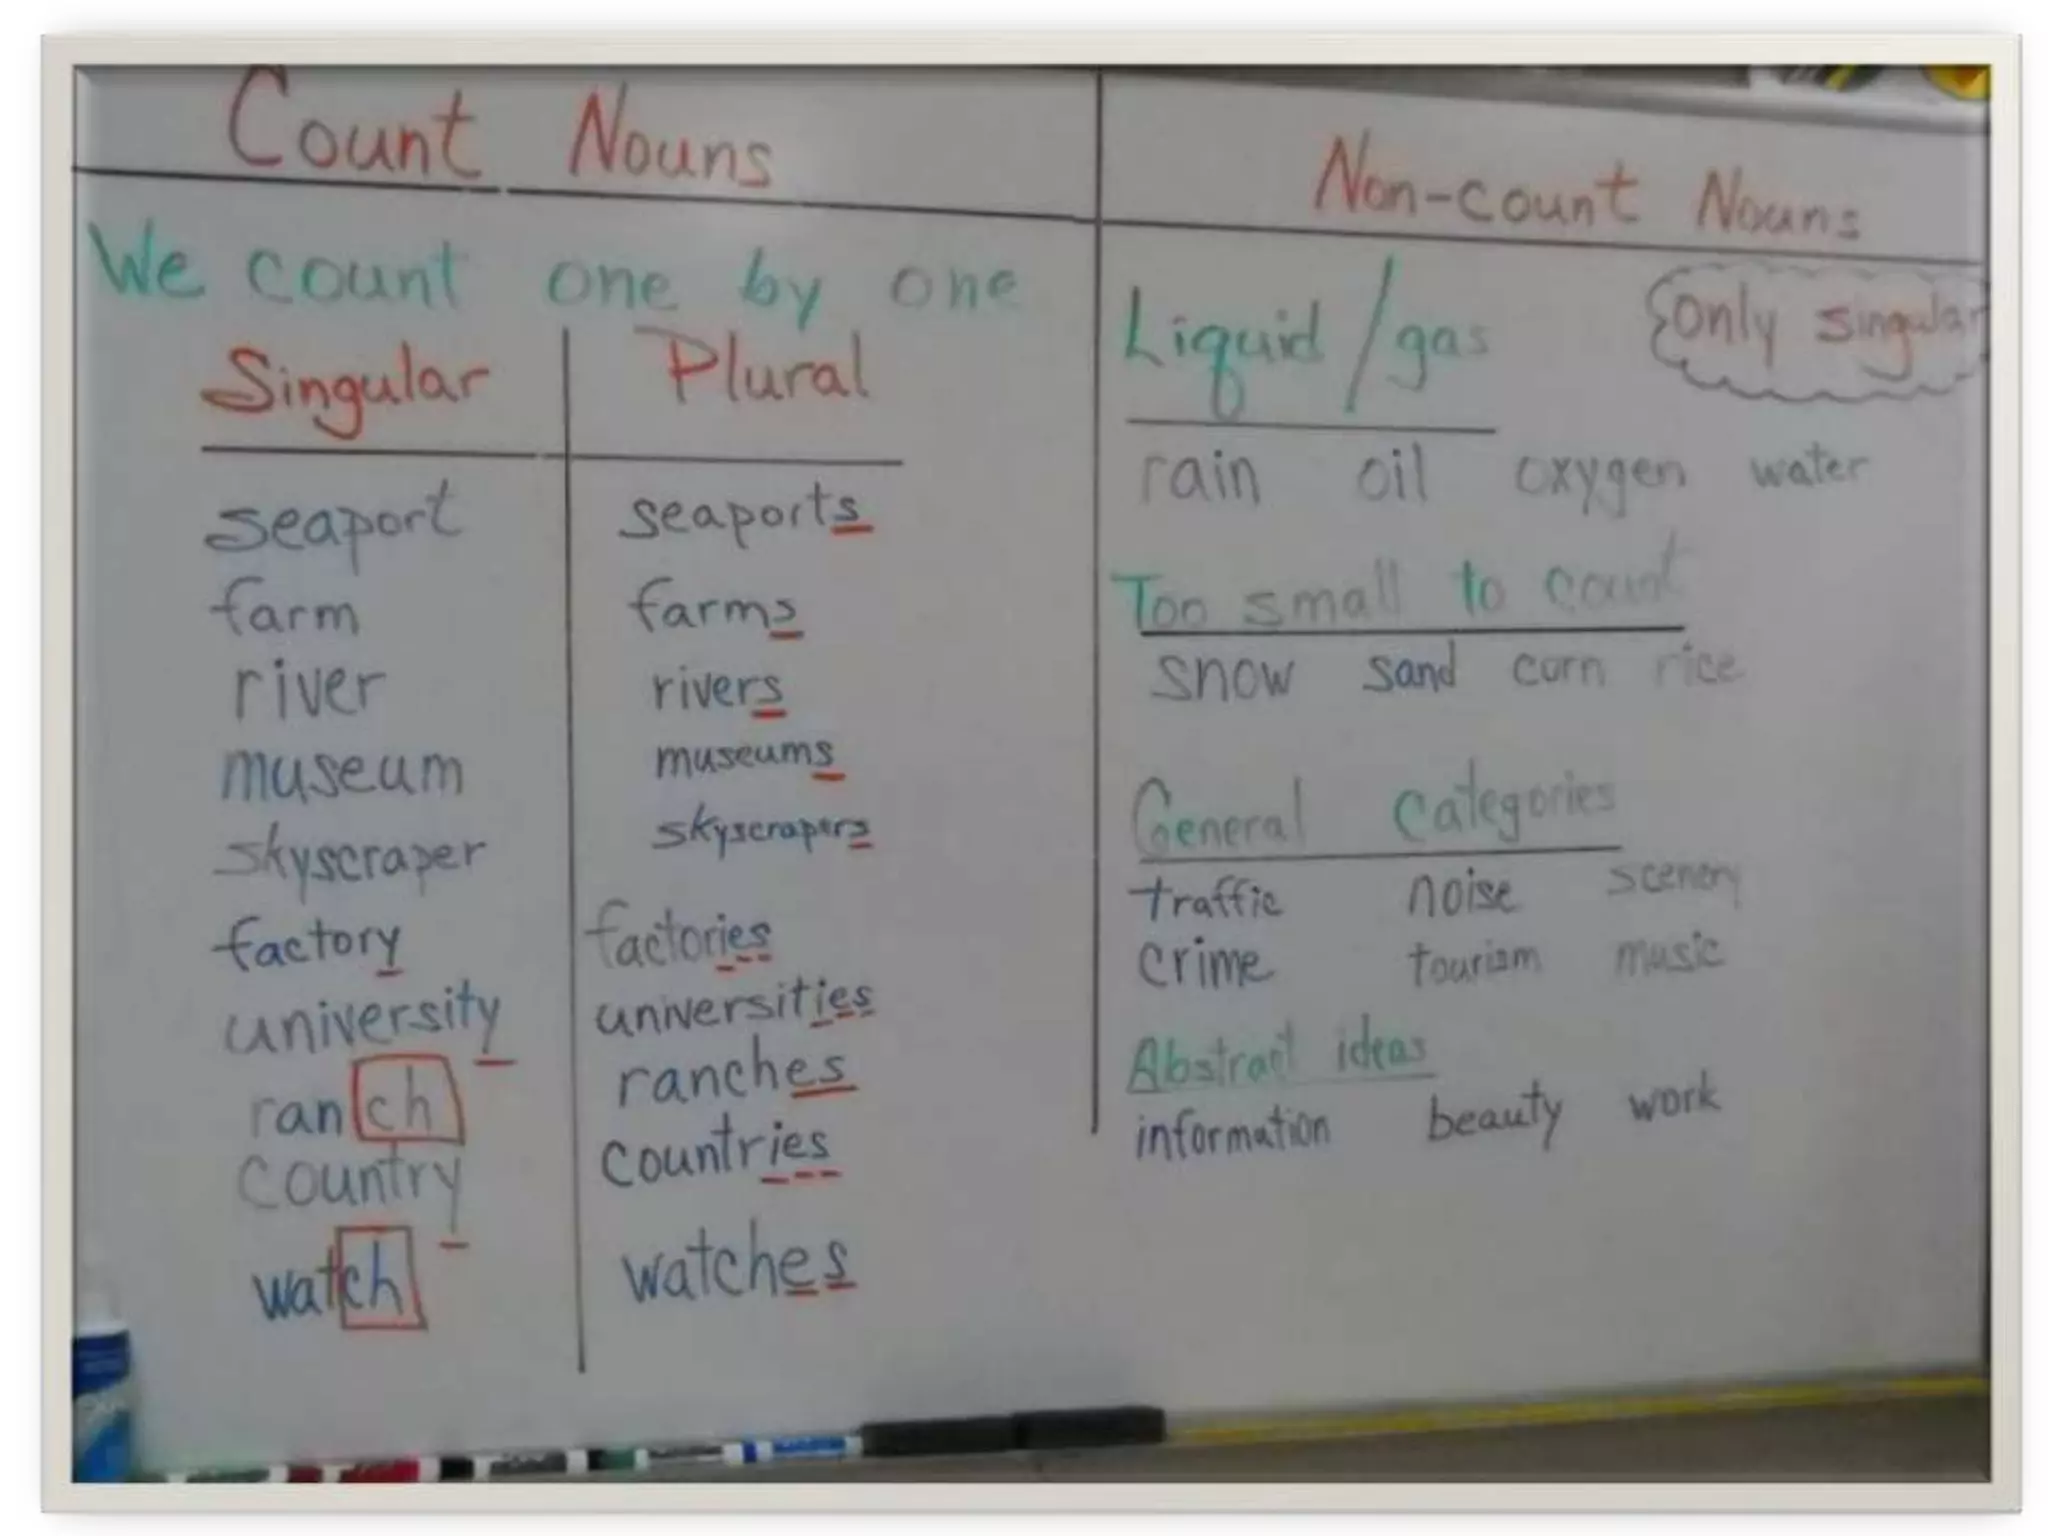 Count Nouns
We count one by one
Singular Plural
seaport seaports
farm farms
river rivers
museum museums
skyscraper skyscrapers
factory factories
university universities
ranch ranches
country countries
watch watches
Non-count Nouns
Only singular
Liquid/gas
rain oil oxygen water
Too small to count
snow sand corn rice
General Categories
traffic noise scenery
crime tourism music
Abstract ideas
information beauty work